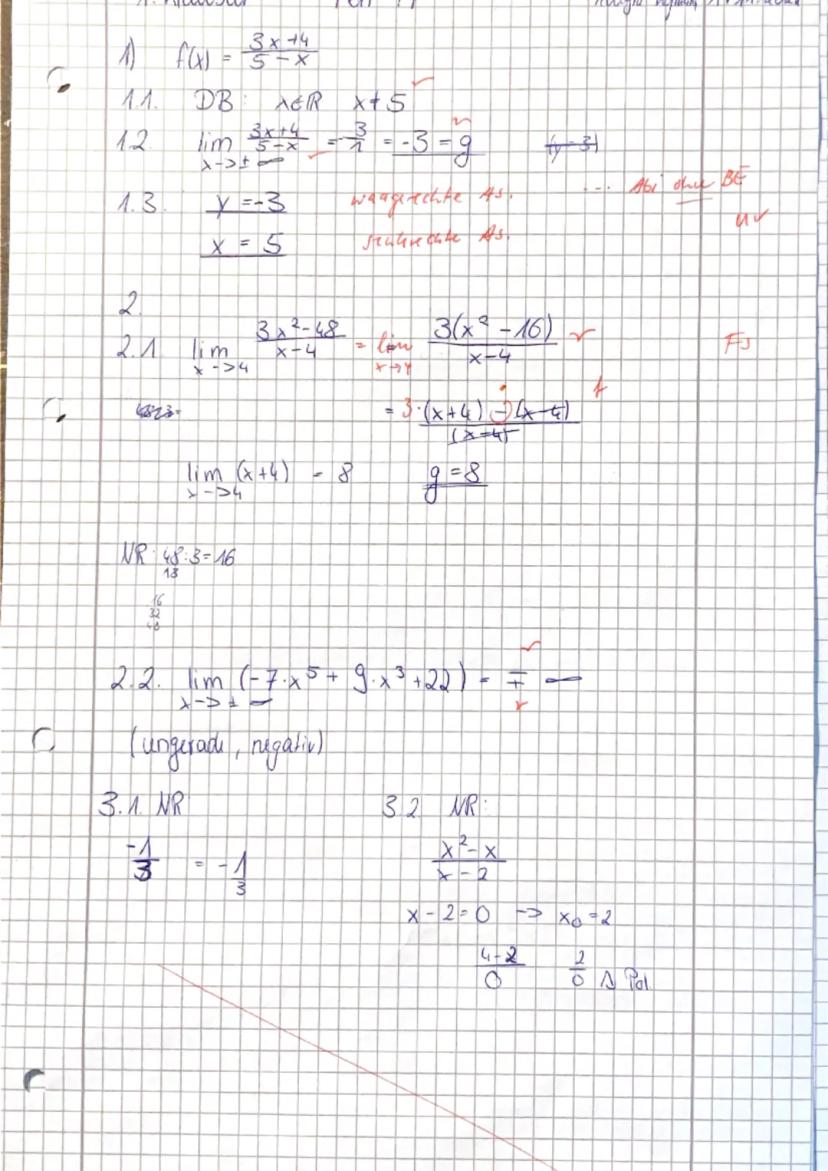 1) f(x) = 3x+4 / 5-x
1.1. DB: x∈ℝ x≠5 ✓
1.2 lim x->±∞ 3x+4 / 5-x = -3/1 = -3 = g ✓
1.3. y=-3 waagerechte As. ... Abi ohne BE
x = 5 senkrechte As. uv
2.
2.1 lim x->4 3x²-48 / x-4 = lim x->4 3(x²-16) / x-4 ✓ Fs
= 3·(x+4)·(x-4) / (x-4) f
lim x->4 (x+4) = 8 g=8
NR: 48:3=16
18
16
32
48
2.2. lim x->±∞ (-7·x⁵ + 9·x³+22) = ∓∞ ✓
(ungerade, negativ)
3.1. NR 3.2 NR:
-1/3 = -1/3 x²-x / x-2
x-2=0 -> x₀=2
4-2 / 0 2/0 ≙ Pol